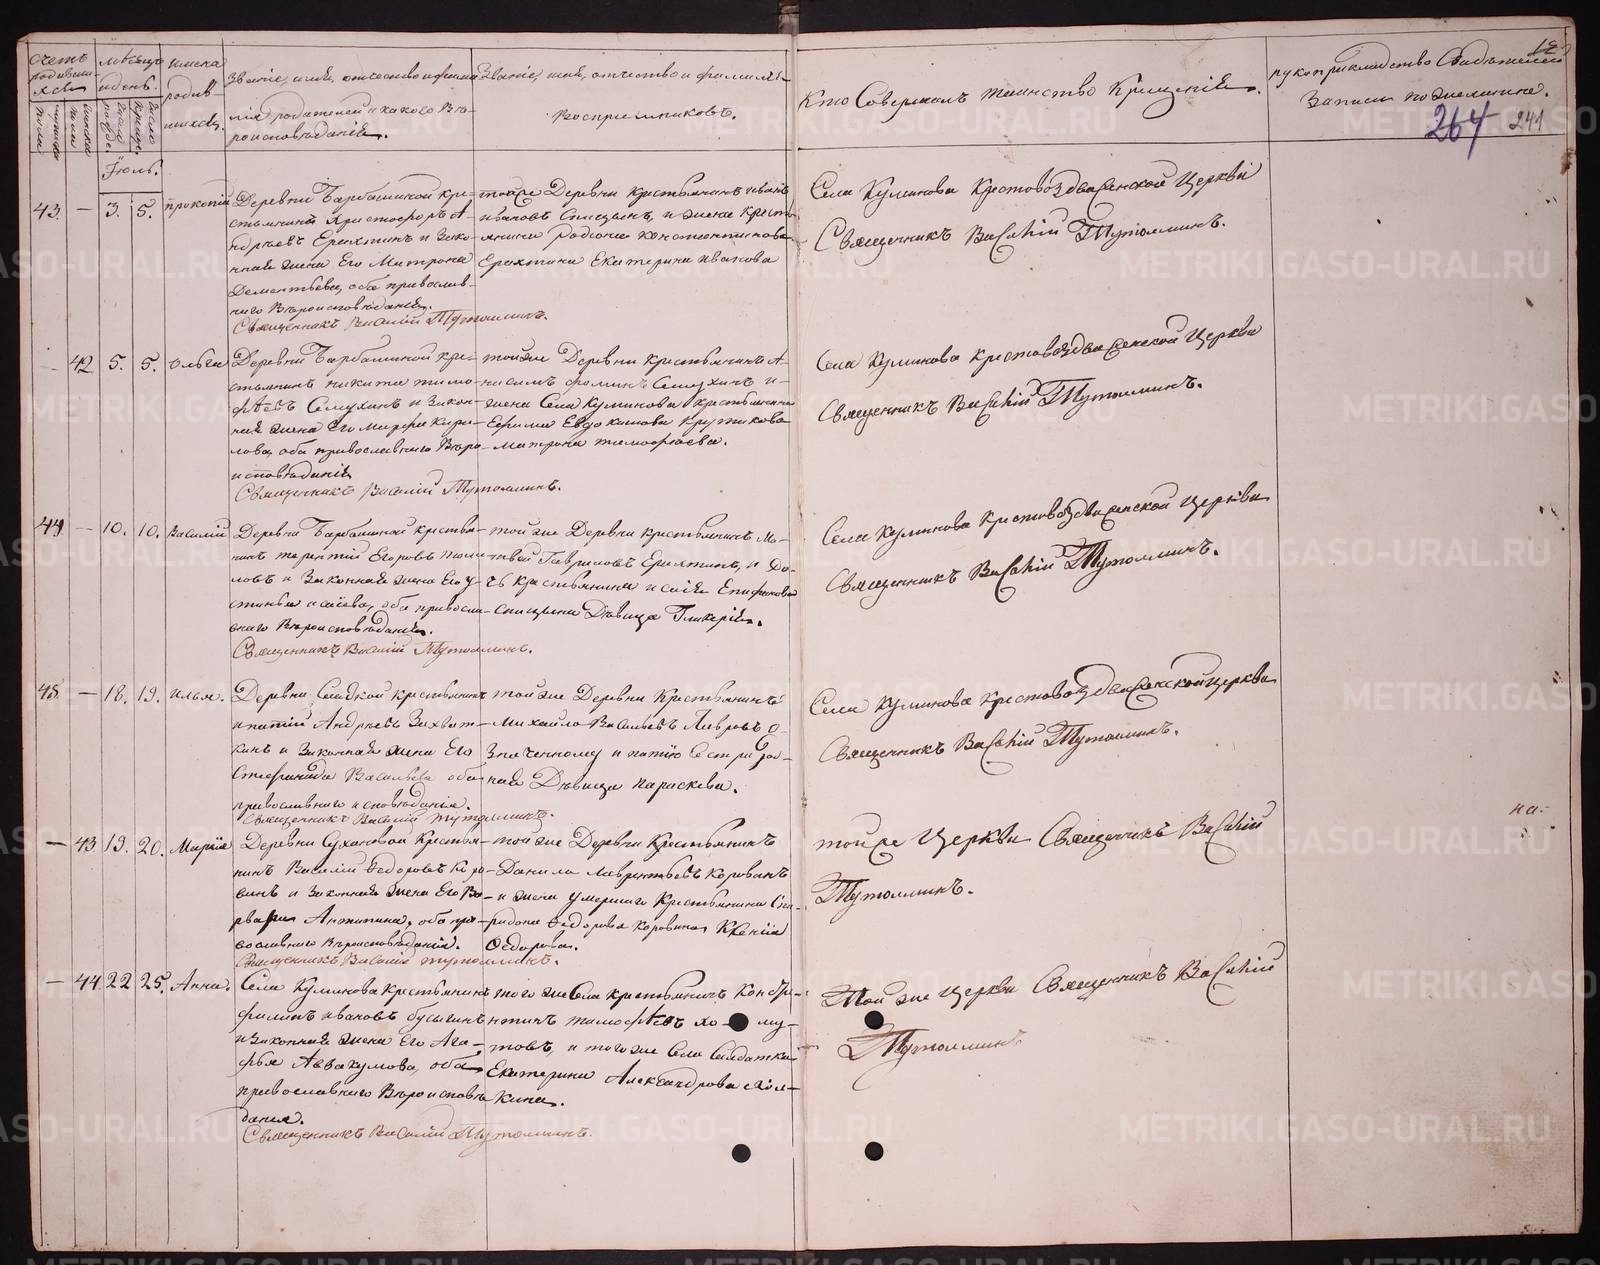 счетъ родившихся
мѣсяцъ и день.
имена родившихся.
Званіе, имя, отчество и фамилія родителей и какого вѣроисповѣданія.
Званіе, имя, отчество и фамилія воспріемниковъ.
Кто Совершалъ таинство Крещенія.
рукоприкладство Свидѣтелей записи по желанію.
12
264
241
Іюль.
43. — 3. 5. прокопій
Деревни Барбашиной кре-
стьянинъ Христофоръ А-
ндреевъ Ерахтинъ и Зако-
нная жена Его Матрона
Дементьева, оба православ-
наго Вѣроисповѣданія.
Священникъ Василій Тутолминъ.
тойже Деревни Крестьянинъ иванъ
ивановъ Спицынъ, и жена Кресть-
янина родіона Константинова
Ерахтина Екатерина иванова
Села Куликова Крестовоздвиженской Церкви
Священникъ Василій Тутолминъ.
— 42 5. 5. Ольга
Деревни Барбашиной кре-
стьянинъ никита тимо-
фѣевъ Семухинъ и Закон-
ная жена Его марфа Кири-
лова, оба православнаго Вѣро-
исповѣданія
Священникъ Василій Тутолминъ.
тойже Деревни Крестьянинъ А-
фоминъ Семухинъ и
жена Села Куликова Крестьянина
Ефима Евдокимова Крутикова
матрона тимофѣева.
Села Куликова крестовоздвиженской Церкви
Священникъ Василій Тутолминъ.
44 — 10. 10. Василій
Деревни Барбашиной крестья-
нинъ терентій Егоровъ
и Законная жена Его у-
стинья исаіева, оба правосла-
внаго Вѣроисповѣданія.
Священникъ Василій Тутолминъ.
той же Деревни крестьянинъ Ма-
твей Гавриловъ Ерахтинъ, и До-
чь крестьянина исаія Епифанова
Спицына Дѣвица Гликерія.
Села Куликова Крестовоздвиженской Церкви
Священникъ Василій Тутолминъ.
45 — 18. 19. илья.
Деревни Сладкой крестьянинъ
ипатій Андреевъ Захват-
кинъ и Законная жена Его
Стефанида Васильева оба
православнаго исповѣданія.
Священникъ Василій тутолминъ.
той же Деревни Крестьянинъ
Михайло Васильевъ Лавровъ о-
значенному ипатію сестра род-
ная Дѣвица параскева.
Села Куликова Крестовоздвиженской церкви
Священникъ Василій Тутолминъ.
— 43. 19. 20. Марія
Деревни Сухановой Крестья-
нинъ Василій Федоровъ Коро-
винъ и Законная жена Его Ва-
рвара Антипина, оба пра-
вославнаго Вѣроисповѣданія.
Священникъ Василій тутолминъ.
той же Деревни Крестьянинъ
Данила лаврентьевъ Коровинъ
и жена умершаго Крестьянина Спи-
ридона Федорова Коровина Ксенія
Федорова.
тойже Церкви Священникъ Василій
Тутолминъ.
на.
— 44. 22 25. Анна.
Села Куликова Крестьянинъ
филипъ ивановъ бусыгинъ
и законная жена Его Ага-
фья Аввакумова, оба
православнаго Вѣроисповѣ-
данія.
Священникъ Василій Тутолминъ.
того же Села крестьянинъ Конста-
нтинъ тимофѣевъ Хо му-
товъ, и того же Села Салдатка
Екатерина Александрова
кина.
Той же церкви Священникъ Василій
Тутолминъ
METRIKI.GASO-URAL.RU